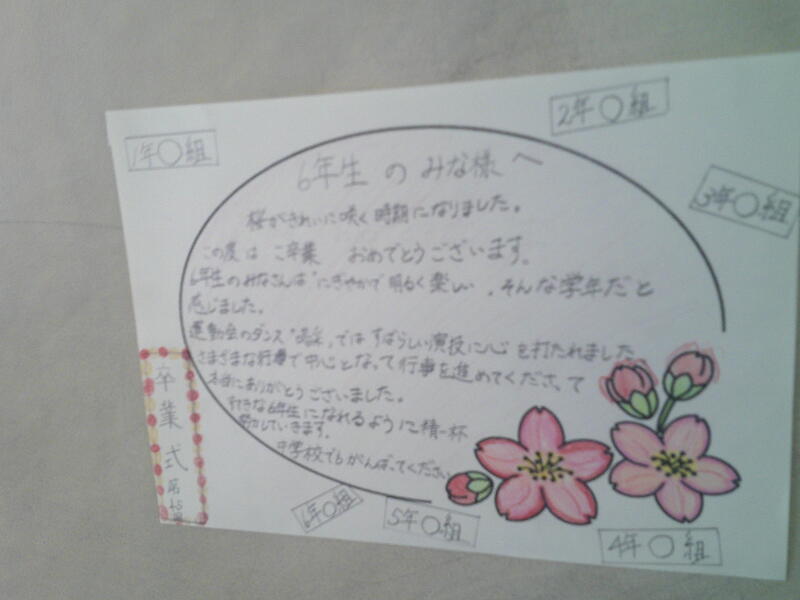 1年〇組
2年〇組
3年〇組
6年生のみな様へ
桜がきれいに咲く時期になりました。
この度はご卒業 おめでとうございます。
6年生のみなさんは"にぎやかで明るく楽しい、そんな学年だと
感じました。
運動会のダンス ではすばらしい演技に心を打たれました
さまざまな行事で中心となって行事を進めてくださって
本当にありがとうございました。
6年生になれるように精一杯
していきます。
中学校でもがんばってください
卒業式
6年〇組
5年〇組
4年〇組